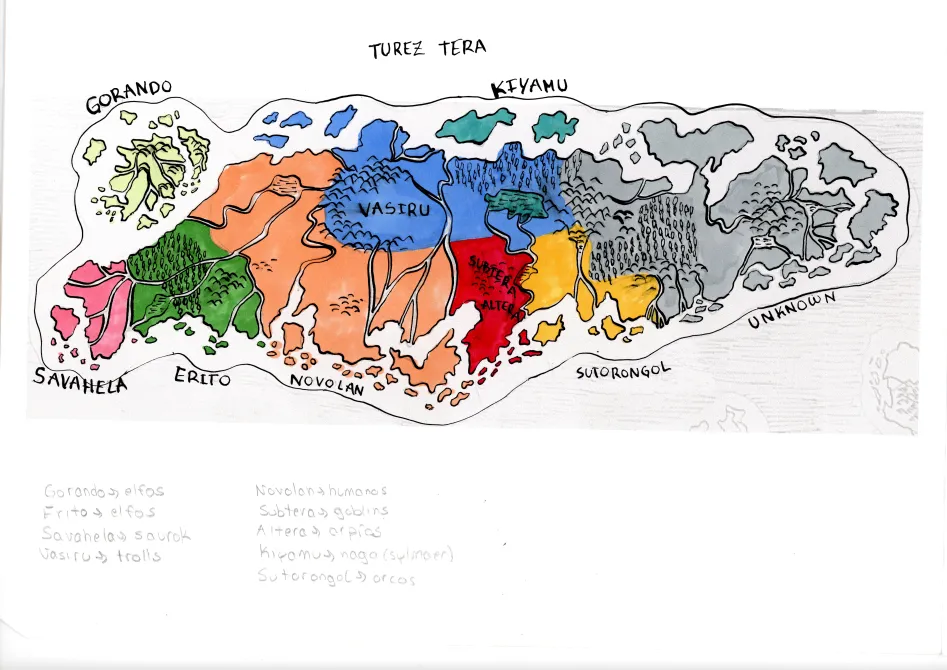 TUREZ TERA
GORANDO
KIYAMU
VASIRU
SUBTERA
ALTERA
UNKNOWN
SUTORONGOL
SAVAHELA
ERITO
NOVOLAN
Gorando→ elfos
Erito→ elfos
Savahela→ saurok
Vasiru→ trolls
Novolan→ humanos
Subtera→ goblins
Altera→ arpías
Kiyamu→ naga (sylmaer)
Sutorongol→ orcos